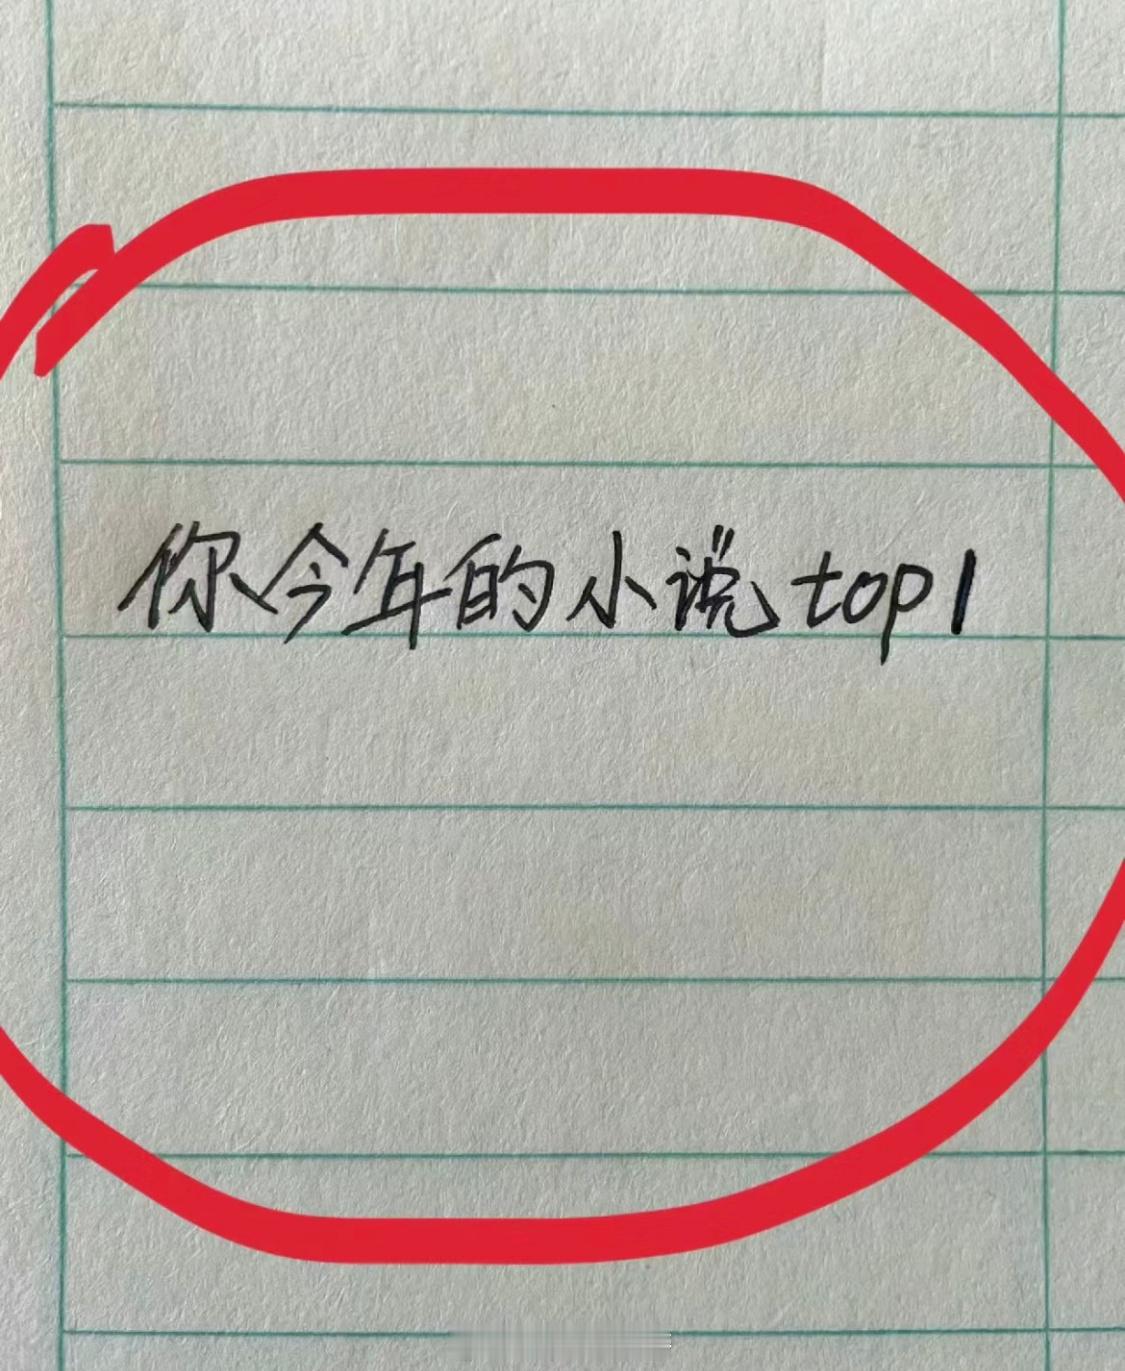 你今年的小说top1